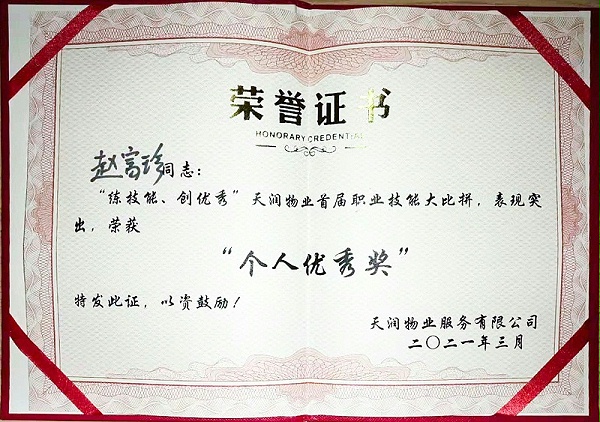 荣誉证书
HONORARY CREDENTIAL
赵富珍同志：
“练技能、创优秀”天润物业首届职业技能大比拼，表现突
出，荣获
“个人优秀奖”
特发此证，以资鼓励！
天润物业服务有限公司
二〇二一年三月